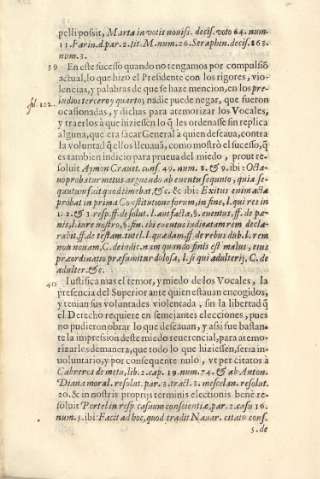 pelli possit, Marta in votis nouiss. decis. voto 64. num.
11. Farin. d. par. 2. tit. M. num. 26. Seraphin. decis. 263.
num. 3.
39 En este sucesso quando no tengamos por compulsiõ
actual, lo que hizo el Presidente con los rigores, vio-
lencias, y palabras de que se haze mencion, en los pre-
ludios tercero y quarto; nadie puede negar, que fueron
ocasionadas, y dichas para atemorizar los Vocales,
y traerlos à que hiziessen lo q̃ les ordenasse sin replica
alguna, que era sacar General a quien deseaua, contra
la voluntad q̃ ellos lleuauã, como mostrò el sucesso, q̃
es tambien indicio para prueua del miedo, prout re-
soluit Aymon Crauet. cons. 49. num. 2. & 9. ibi: Octa-
uo probatur metus arguendo ab euentu sequuto, quia se-
quutum fuit quod timebat, &c. & ibi: Exitus enim acta
probat in prima Constitutione forum, in fine, l. qui res in
1. 2. & 3. resp. ff. de solut. l. aut facta, §. euentus, ff. de pœ-
nis, l. hære nostro, §. fin. ibi euentus indicat am rem decla-
rabit. ff. de testam. tutel. l. quædam, ff. de rebus dub. l. rem
non nouam, C. de iudit. nam quando finis est malus, eius
præordinatio præsumitur dolosa, l. si qui adulterij, C. de
adulter. &c.
40 Iustifica mas el temor, y miedo de los Vocales, la
presencia del Superior ante quien estauan encogidos,
y tenian sus voluntades violentada, sin la libertad q̃
el Derecho requiere en semejantes elecciones, pues
no pudieron obrar lo que deseauan, y assi fue bastan-
te la impression deste miedo reuerencial, para atemo-
rizarles de manera, que todo lo que hiziessen, seria in-
voluntario, y por consequente nulo, vt per citatos à
Cabreros de metu, lib. 2. cap. 19. num. 74. & ab Anton.
Diana moral. resolut. par. 2. tract. 3. mescelan. resolut.
20. & in nostris proprijs terminis electionis bene re-
soluit Portel in resp. casuum conscientiæ, par. 2. casu 16.
num. 3. ibi: Facit ad hoc, quod tradit Nauar. citato cons.
5. de